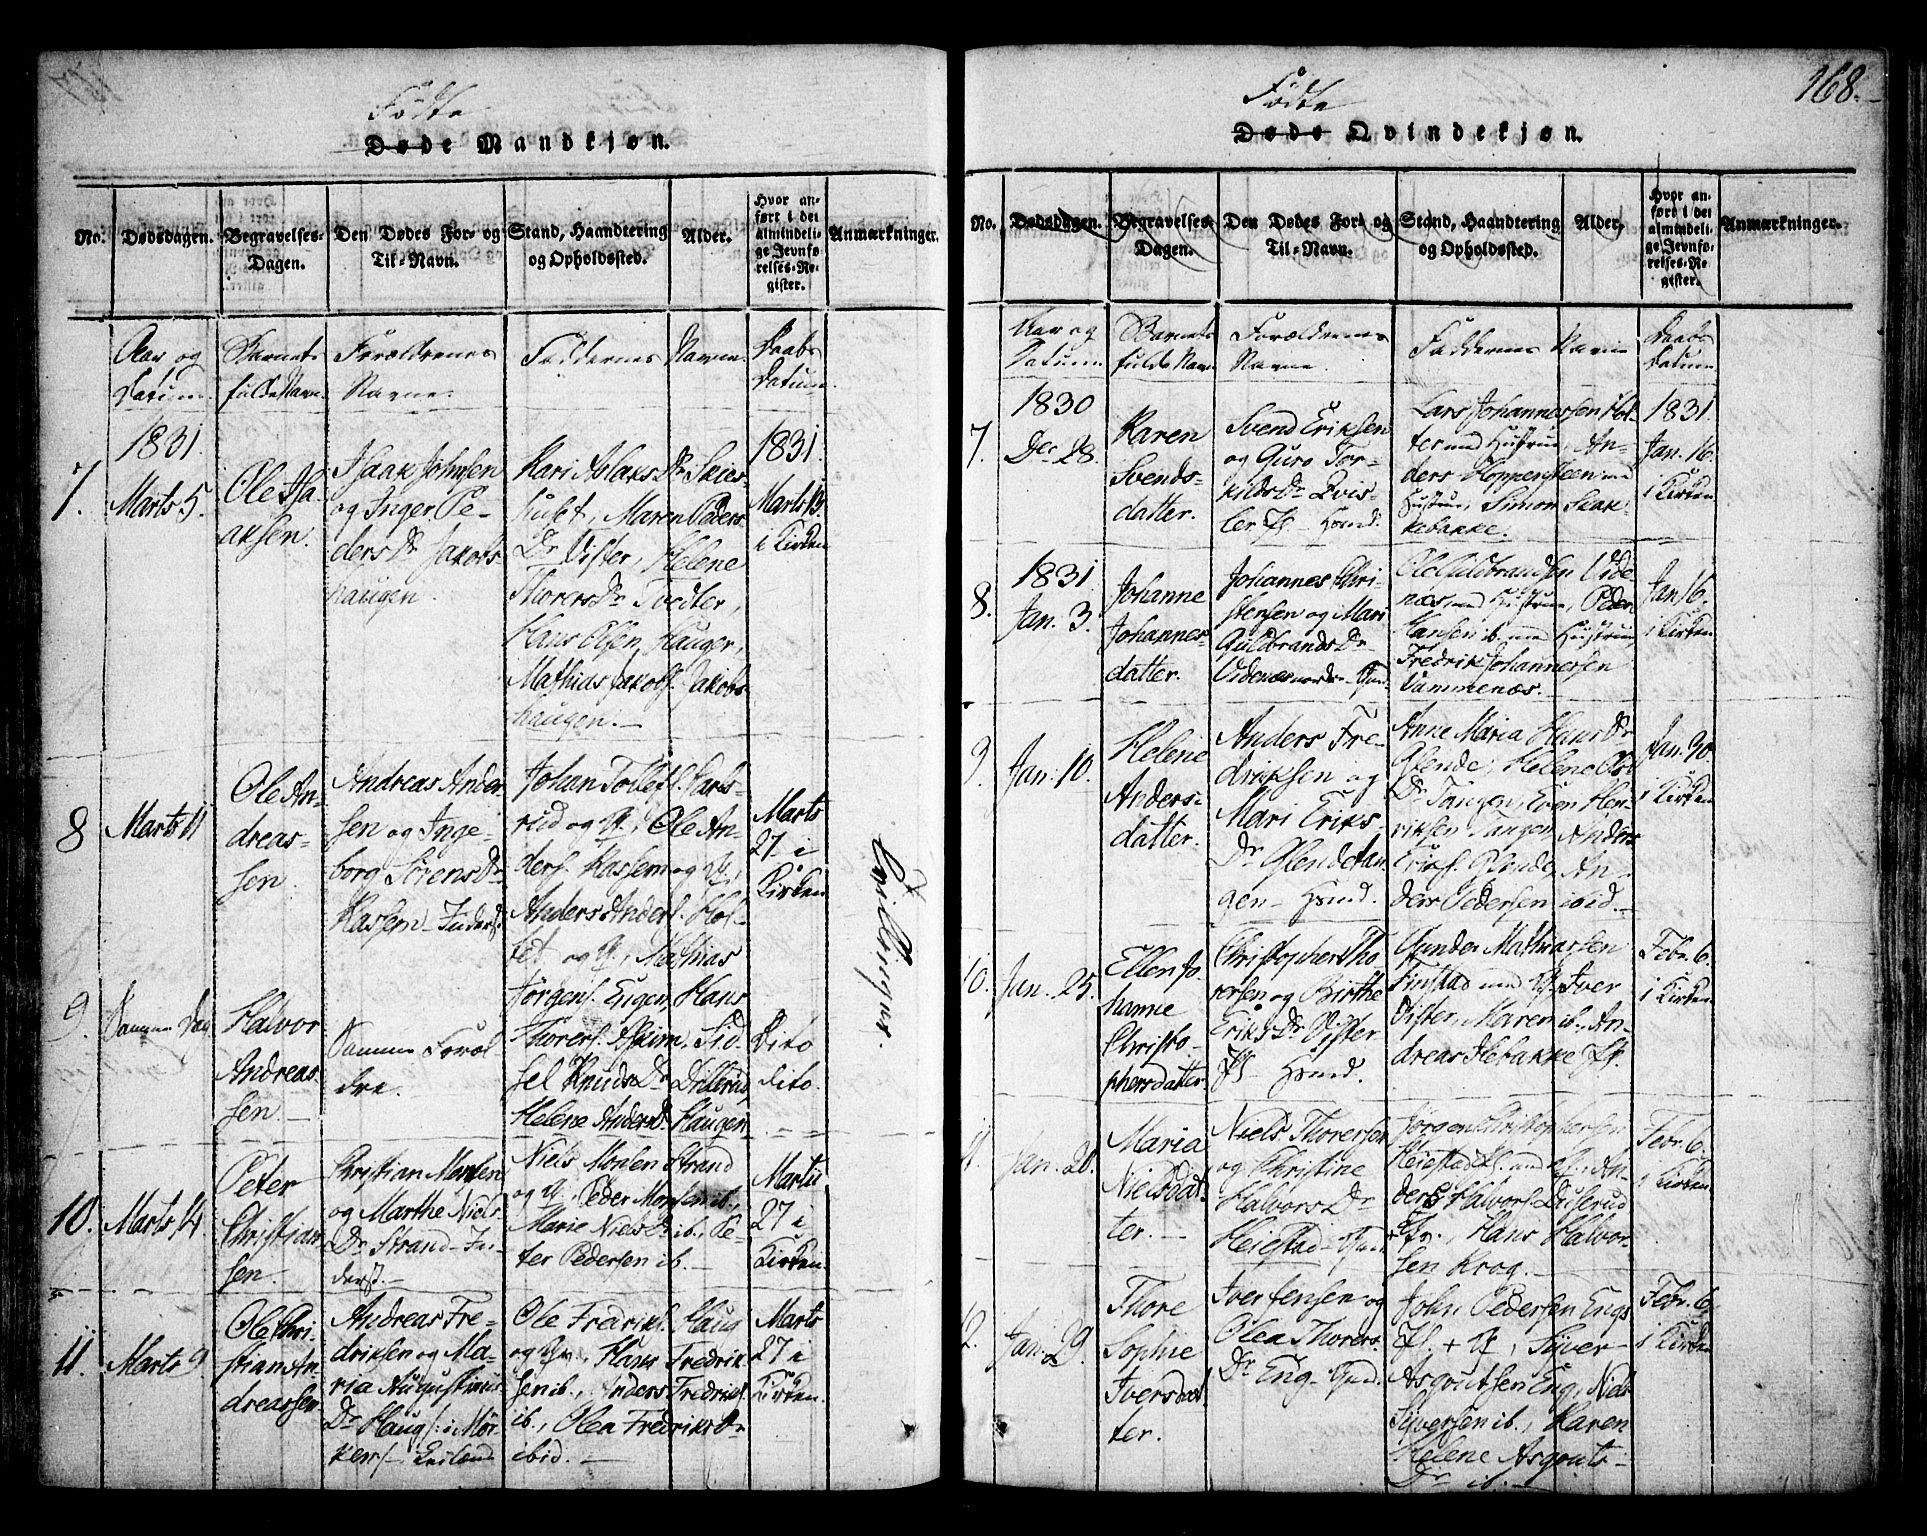 168.
Födte
Døde Mandkjøn.
No.
Dødsdagen.
Begravelses-
Dagen.
Den Dødes For- og
Til-Navn.
Stand, Haandtering
og Opholdssted.
Alder.
Hvor an-
ført i det
almindeli-
ge Jevnfø-
relses-Re-
gister.
Anmærkninger.
Aar og
Datum.
Barnets
fulde Navn.
Forældrenes
Navne.
Faddernes Navne.
Daabs
Datum.
7.
1831.
Marts 5.
Ole Isa-
aksen.
Isaak Johnsen
og Inger Pe-
ders Dr Jakobs-
haugen.
Kari Aslaks Dr Skies-
Maren Peders
Dr Vister, Helene
Thorers Dr Tvedter,
Hans Olsen Hauger,
Mathias Jakobs. Jakobs-
haugen.
1831
Marts 13
i Kirken
8
Marts 11
Ole An-
dreas-
sen.
Andreas Ander-
sen og Inge-
borg Sörens Dr
Kassem
Johan Tollefs.
rud og H., Ole An-
ders. Kassem og H.,
Anders Anders. Hol-
tet og H., Mathias
Jørgens. Eugen, Hans
Thorers. Askim, Sid-
sel Knuds Dr Dillerud
Helene Anders Dr Haugen
Marts
27 i
Kirken
Tvillinger.
9.
Samme Dag
Halvor
Andreas-
sen.
Samme Foræl-
dre.
Dito
dito.
10.
Marts 14.
Peter
Christian-
sen.
Christian Monsen
og Marthe Niels
Dr Strand
Niels Monsen Strand
og H., Peder Monsen ib.,
Marie Niels Dr ib., Pe-
ter Pedersen ib.
Martii
27 i
Kirken.
11.
Marts 9.
Ole Chri-
stian An-
dreassen.
Andreas Fre-
driksen og Ma-
ria Augustinus
Dr Haug
Ole Fredriks. Haug
og H., Hans Fredrik-
sen ib., Anders Fredriks.
ib., Olea Fredriks Dr
ibid.
Marts
27 i
Kirken.
Födte
Døde Qvindekjøn.
No.
Dødsdagen.
Begravelses-
Dagen.
Den Dødes For- og
Til-Navn.
Stand, Haandtering
og Opholdssted.
Alder.
Hvor an-
ført i det
almindeli-
ge Jevnfø-
relses-Re-
gister.
Anmærkninger.
Aar og
Datum.
Barnets
fulde Navn
Forældrenes
Navne.
Faddernes Navne
Daabs
Datum
7.
1830
Dec 28.
Karen
Svends-
datter.
Svend Eriksen
og Guro Tor-
kilds Dr Qvis-
ler
Lars Johannessen Hol-
ter med Hustrue, An-
ders Koppersteen med
Hustrue, Simon Skak-
kebakke.
1831.
Jan. 16.
i Kirken
8.
1831
Jan. 3.
Johanne
Johannes-
datter.
Johannes Chri-
stensen og Mari
Guldbrands Dr
Ole Guldbrandsen Vide-
næs med Hustrue, Peder
Hansen ib. med Hustrue,
Fredrik Johannessen
Vammenæs.
Jan 16.
i Kirken
9.
Jan. 10.
Helene
Anders-
datter.
Anders Fre-
driksen og
Mari Eriks-
Dr Glendetan-
gen
Anne Maria Hans Dr
Glende, Helene
Dr Tangen, Even Hen-
riksen Tangen, Anders
Eriks. Glende, An-
ders Pedersen ibid.
Jan. 30.
i Kirken
10.
Jan. 25.
Ellen Jo-
hanne
Christo-
phersdatter.
Christopher Tho-
rersen og Birthe
Eriks Dr Vister
Gunder Mathiassen
Finstad med H., Iver
Vister, Maren ib., An-
dreas
Febr. 6.
i Kirken
11.
Jan. 20.
Maria
Nielsdat-
ter.
Niels Thorersen
og Christine
Halvors Dr
Heiestad
Jørgen Christophersen
Heiestad
ders Halvors. Duserud
Hans Halvor-
sen Krog.
Febr. 6.
i Kirken
12.
Jan. 29.
Thore
Sophie
Iversdat-
ter.
Iver Jensen og
Olea Thorers.
Dr Eng
John Pedersen Engs
Siver
Asgoutsen Eng, Niels
Sijversen ib., Karen
Helene Asgouts-
Dr ib.
Febr. 6.
i Kirken